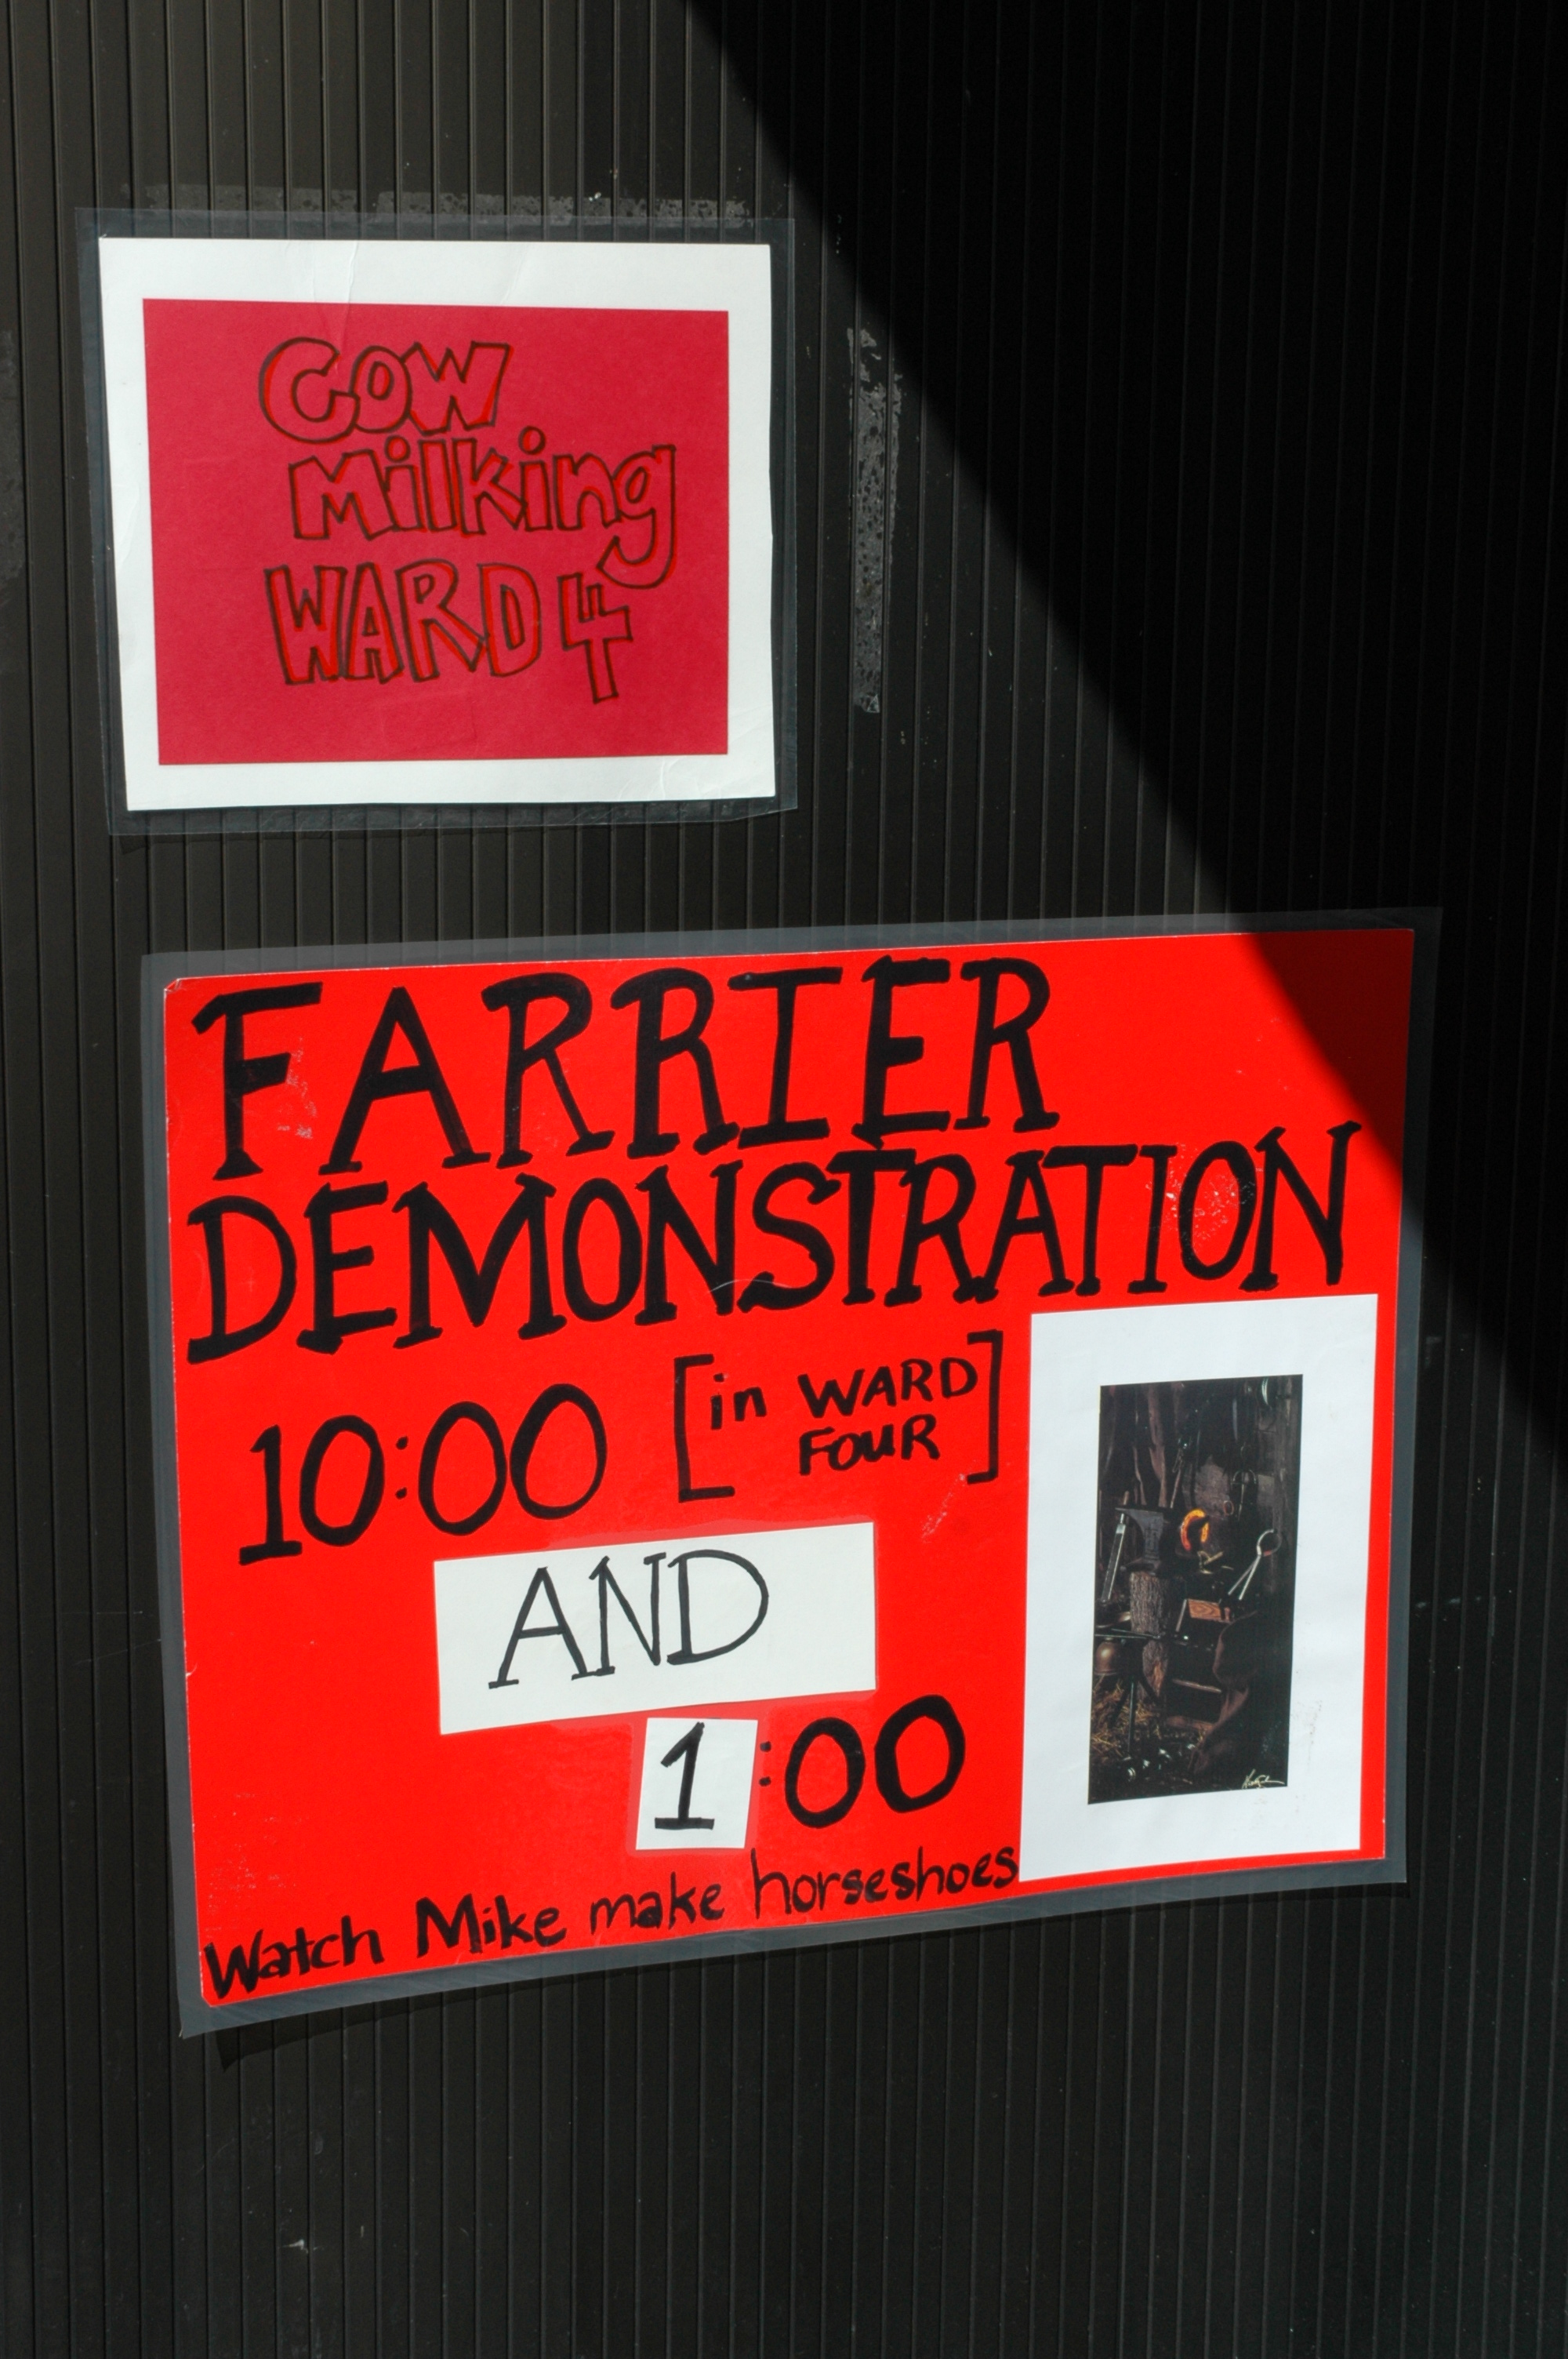 Cow
Milking
WARD 4
FARRIER
DEMONSTRATION
10:00 [in WARD
FOUR]
AND
1:00
Watch Mike make horseshoes